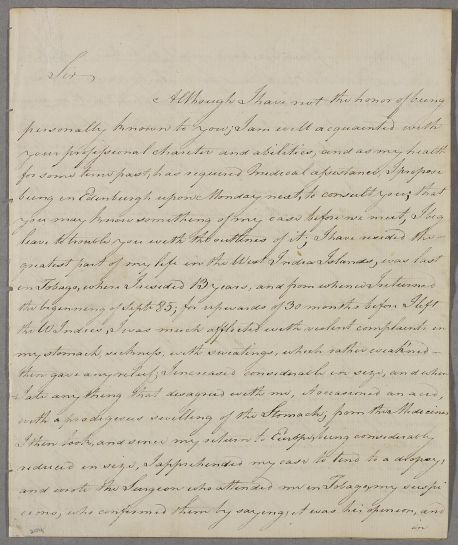 Sir
Although I have not the honor of being
personally known to you; I am well acquainted with
your professional character and abilities, and as my health
for some time past, has required medical assistance, I propose
being in Edinburgh upon Monday next, to consult you; that
you may know something of my case before we meet, I beg
leave to trouble you with the outlines of it; I have resided the
greatest part of my life in the West India Islands, was last
in Tobago, where I resided 13 years, and from whence I returned
the beginning of Sept. 85; for upwards of 30 months before I left
the W Indies, I was much afflicted with violent complaints in
my stomach, sickness, with sweatings, which rather weakned
then gave any relief, I increased considerable in size, and when
I ate any thing that disagreed with me, it occasioned an acid,
with a prodigeous swelling of the Stomach; from the Medicines
I then took, and since my return to Europe, being considerably
reduced in size, I apprehended my case to tend to a dropsy,
and wrote the Surgeon who attended me in Tobago, my suspi
cions, who confirmed them by saying, it was his opinion, and
in